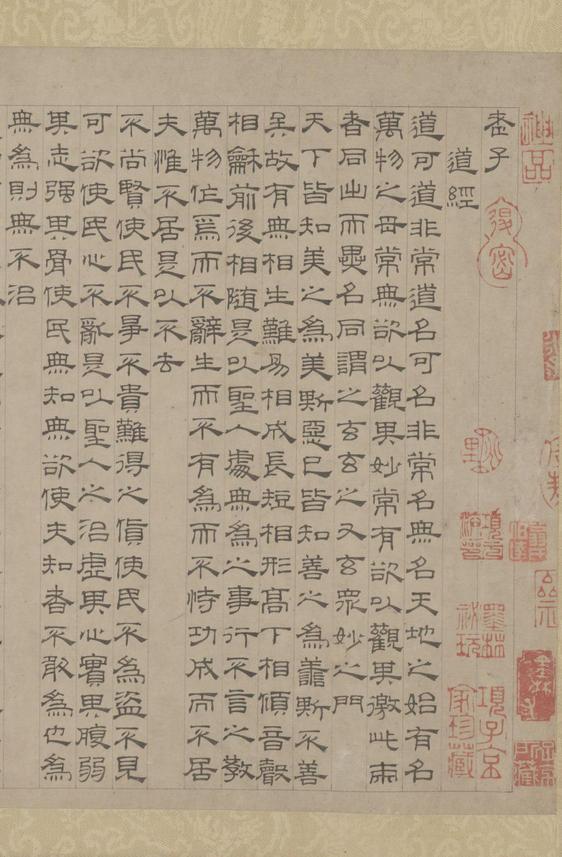 神品
老子
道經
項子京家珍藏
墨林祕玩
道可道非常道名可名非常名無名天地之始有名
萬物之母常無欲以觀其妙常有欲以觀其徼此兩
者同出而異名同謂之玄玄之又玄眾妙之門
天下皆知美之為美斯惡已皆知善之為善斯不善
矣故有無相生難易相成長短相形高下相傾音聲
相龢前後相隨是以聖人處無為之事行不言之教
萬物作焉而不辭生而不有為而不恃功成而不居
夫惟不居是以不去
不尚賢使民不爭不貴難得之貨使民不為盜不見
可欲使民心不亂是以聖人之治虛其心實其腹弱
其志强其骨使民無知無欲使夫知者不敢為也為
無為則無不治